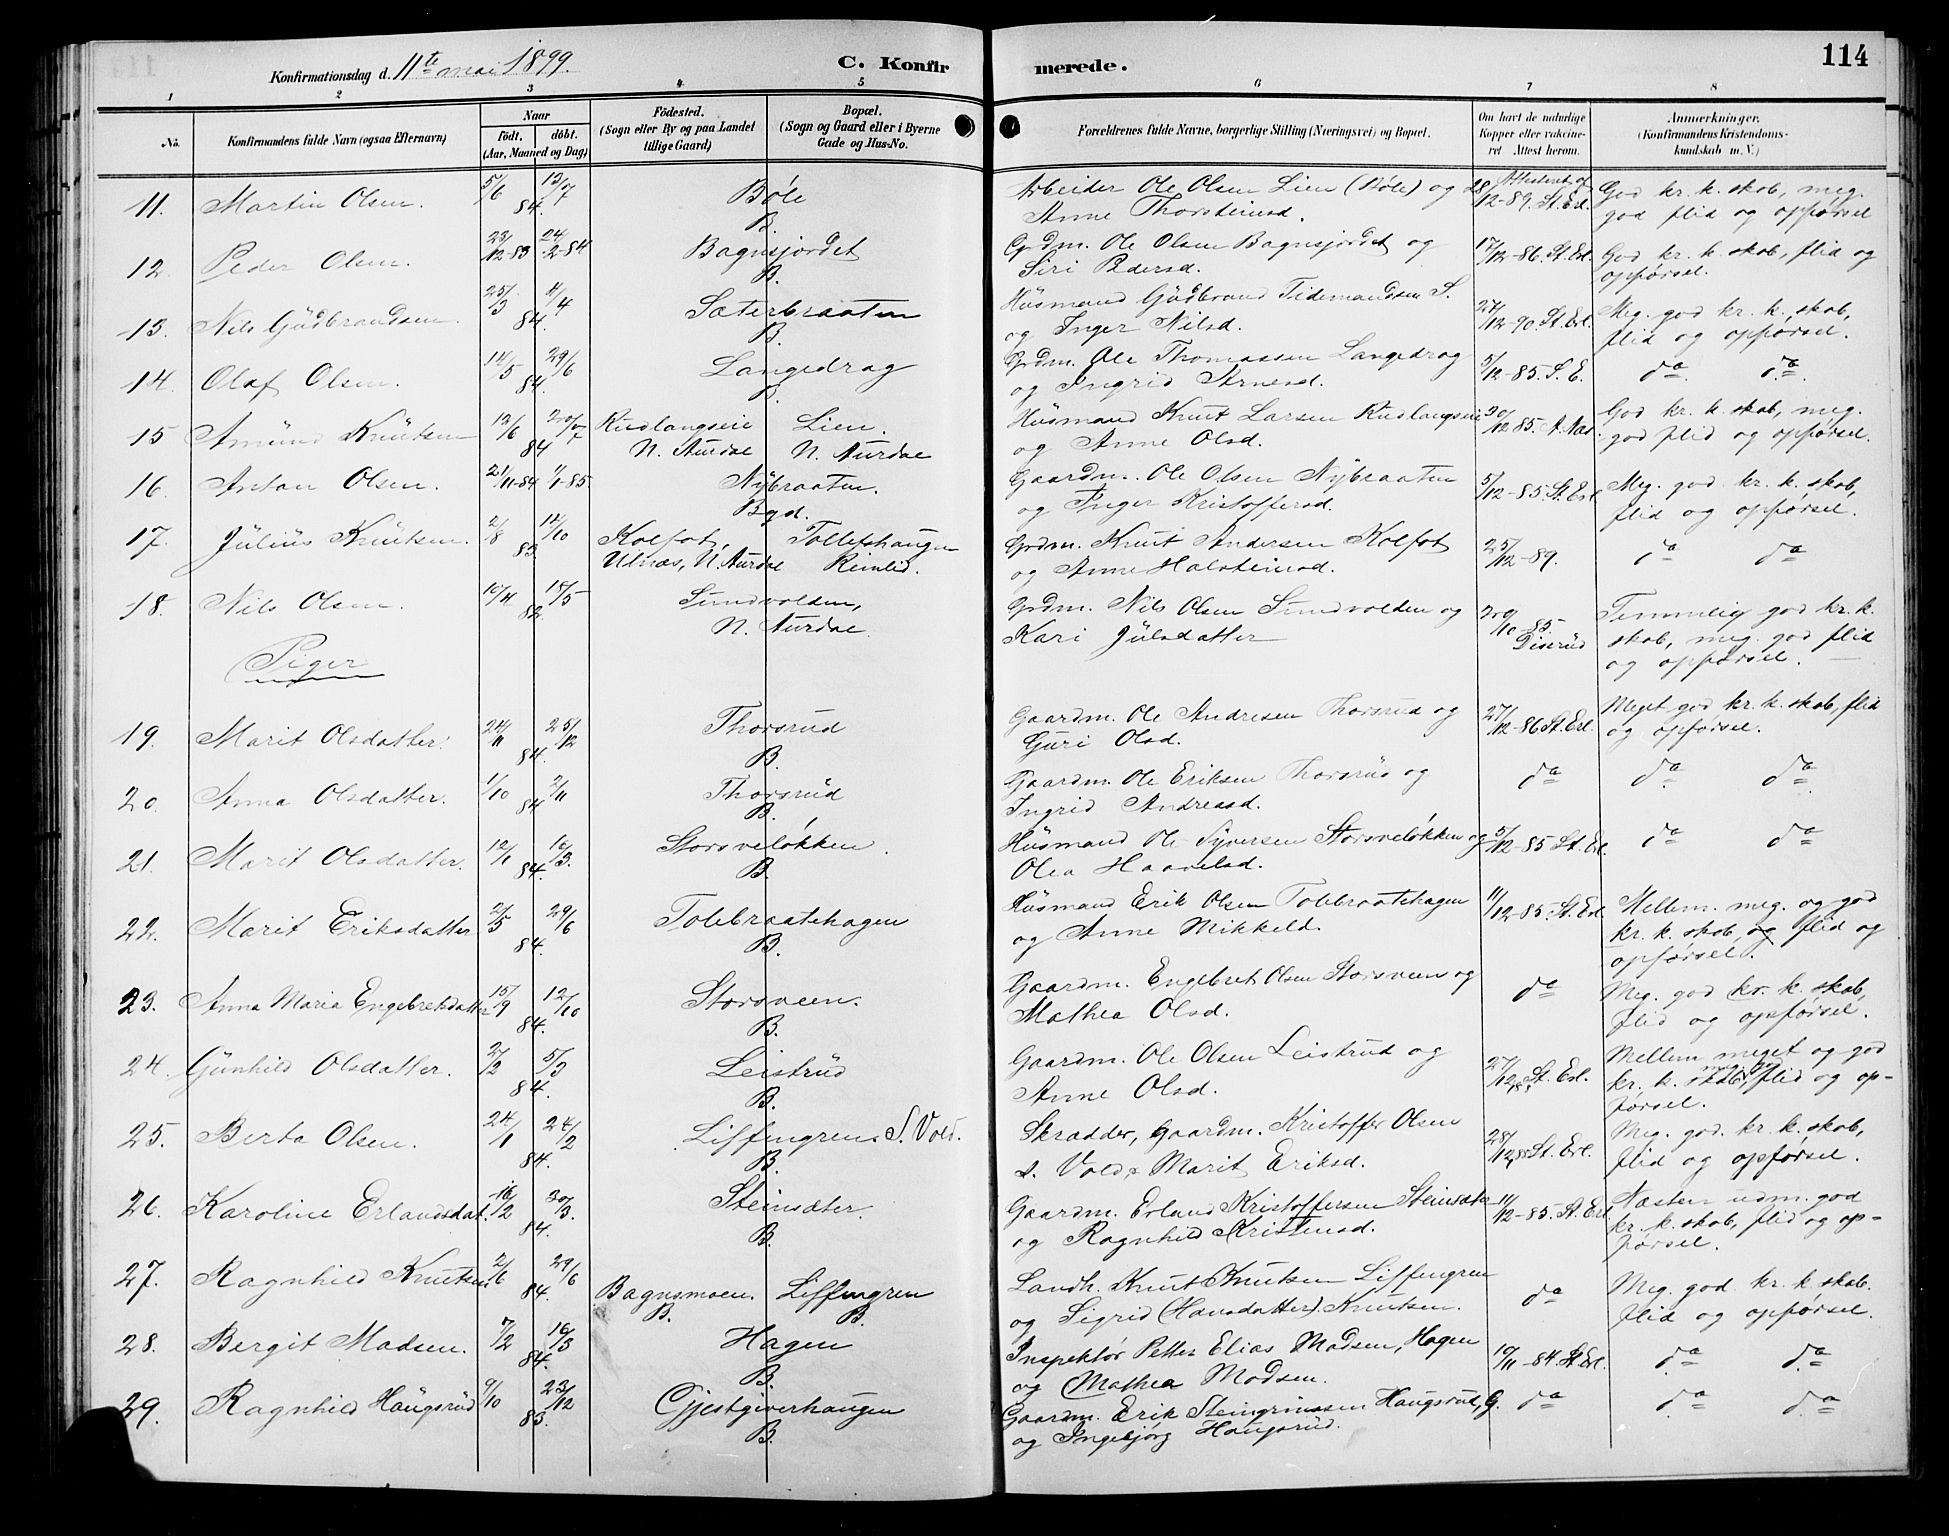 Konfirmationsdag d. 11te mai 1899. C. Konfirmerede. 114
1 2 3 4 5 6 7 8
No. Konfirmandens fulde Navn (ogsaa Efternavn) Naar födt. döbt. (Aar, Maaned og Dag) Födested. (Sogn eller By og paa Landet tillige Gaard) Bopæl. (Sogn og Gaard eller i Byerne Gade og Hus-No. Forældrenes fulde Navne, borgerlige Stilling (Næringsvei) og Bopæl. Om havt de naturlige Kopper eller vakcineret Attest herom. Anmerkninger. (Konfirmandens Kristendomskundskab m. V.)
11. Martin Olsen. 5/6 84. 13/7 Bøle B. Arbeider Ole Olsen Lien (Bøle) og Anne Thorsteinsd. 28/12-89. St. Erl. God kr. k. skab, meg. god flid og opførsel
12. Peder Olsen. 23/12-83 24/2-84 Bagnsjordet B. Grdm. Ole Olsen Bagnsjordet og Siri Pedersd. 17/12-86. St. Erl. God kr. k. skab, flid og opførsel.
13. Nils Gudbrandsen. 25/3 84. 4/4 Sæterbraaten B. Husmand Gudbrand Tidemandsen S. og Inger Nilsd. 27/12-90. St. Erl. Meg. god kr. k. skab, flid og opførsel.
14. Olaf Olsen. 14/5 84. 29/6 Langedrag B. Grdm. Ole Thomassen Langedrag og Ingrid Arnesd. 5/12-85. S. E. da. da.
15 Amund Knutsen 12/6 84 20/7 Rudlangseie N. Aurdal Lien. N. Aurdal Husmand Knut Larsen Rudlangseie og Anne Olsd. 30/12 85. God kr. k. skab, meg. god flid og opførsel.
16. Anton Olsen. 21/11-84 1/1-85. Nybraaten. Bgd. Gaardm. Ole Olsen Nybraaten og Inger Kristoffersd. 5/12-85 St. Erl. Meg. god kr. k. skab, flid og opførsel.
17. Julius Knutsen. 2/8 83. 14/10 Kolfot, Ulnæs, N. Aurdal Tollefshaugen Reinlid. Grdm. Knut Andersen Kolfot og Anne Halsteinsd. 25/12-89. da da
18. Nils Olsen. 10/4 82. 18/5 Sundvolden, N. Aurdal. Grdm. Nils Olsen Sundvolden og Kari Julsdatter 29/10-85. Diserud Temmelig god kr. k. skab, meg. god flid og opførsel.
Piger
19. Marit Olsdatter. 24/11 84. 25/12 Thorsrud B. Gaardm. Ole Andresen Thorsrud og Guri Olsd. 27/12-86 St. Erl. Meget god kr. k. skab, flid og opførsel.
20. Anna Olsdatter. 1/10 84 2/11 Thorsrud B. Gaardm. Ole Eriksen Thorsrud og Ingrid Andreasd. da da da
21. Marit Olsdatter. 12/1 84. 16/3. Storsveløkken. B. Husmand Ole Syversen Storsveløkken og Olea Haavelsd. 5/12-85 St. Erl. da da
22. Marit Eriksdatter 2/5 84. 29/6 Tolebraatehagen B. Husmand Erik Olsen Tolebraatehagen og Anne Mikkelsd. 11/12-85. St. Erl. Mellem. meg. og god kr. k. skab, og flid og opførsel.
23. Anna Maria Engebretsdatter 15/9 84. 12/10 Storsveen. B. Gaardm. Engebret Olsen Storsveen og Mathea Olsd. da Meg. god kr. k. skab, flid og opførsel.
24. Gunhild Olsdatter. 2/2 84. 5/3 Leistrud B. Gaardm. Ole Olsen Leistrud og Anne Olsd. 27/12 St. Erl. Mellem meget og god kr. k. skab, meg. god flid og opførsel.
25. Berta Olsen. 24/1 84. 24/2 Liffengren. S. Vold. B. Skrædder, Gaardm. Kristoffer Olsen s. Vold & Marit Eriksd. 28/12 St. Erl. Meg. god. kr. k. skab, flid og opførsel.
26. Karoline Erlandsdat. 16/2 84. 30/3. Steinsæter. B. Gaardm. Erland Kristoffersen Steinsæter og Ragnhild Kristensd. 11/12-85. St. Erl Næsten udm. god kr. k. skab, flid og opførsel.
27. Ragnhild Knutsen. 2/6 84. 29/6 Bagnsmoen. B. Liffengren B. Landh. Knut Knutsen Liffengren og Sigrid (Hansdatter) Knutsen. da Meg. god kr. k. skab. flid og opførsel.
28. Bergit Madsen. 7/2 84. 16/3 Hagen B. Inspektør Petter Elias Madsen, Hagen og Mathea Madsen. 10/11-84 St. Erl. da da
29. Ragnhild Haugsrud 9/10 83. 23/12 Gjestgiverhaugen B. Gaardm. Erik Steingrimsen Haugsrud, G. og Ingebjørg Haugsrud. da da da